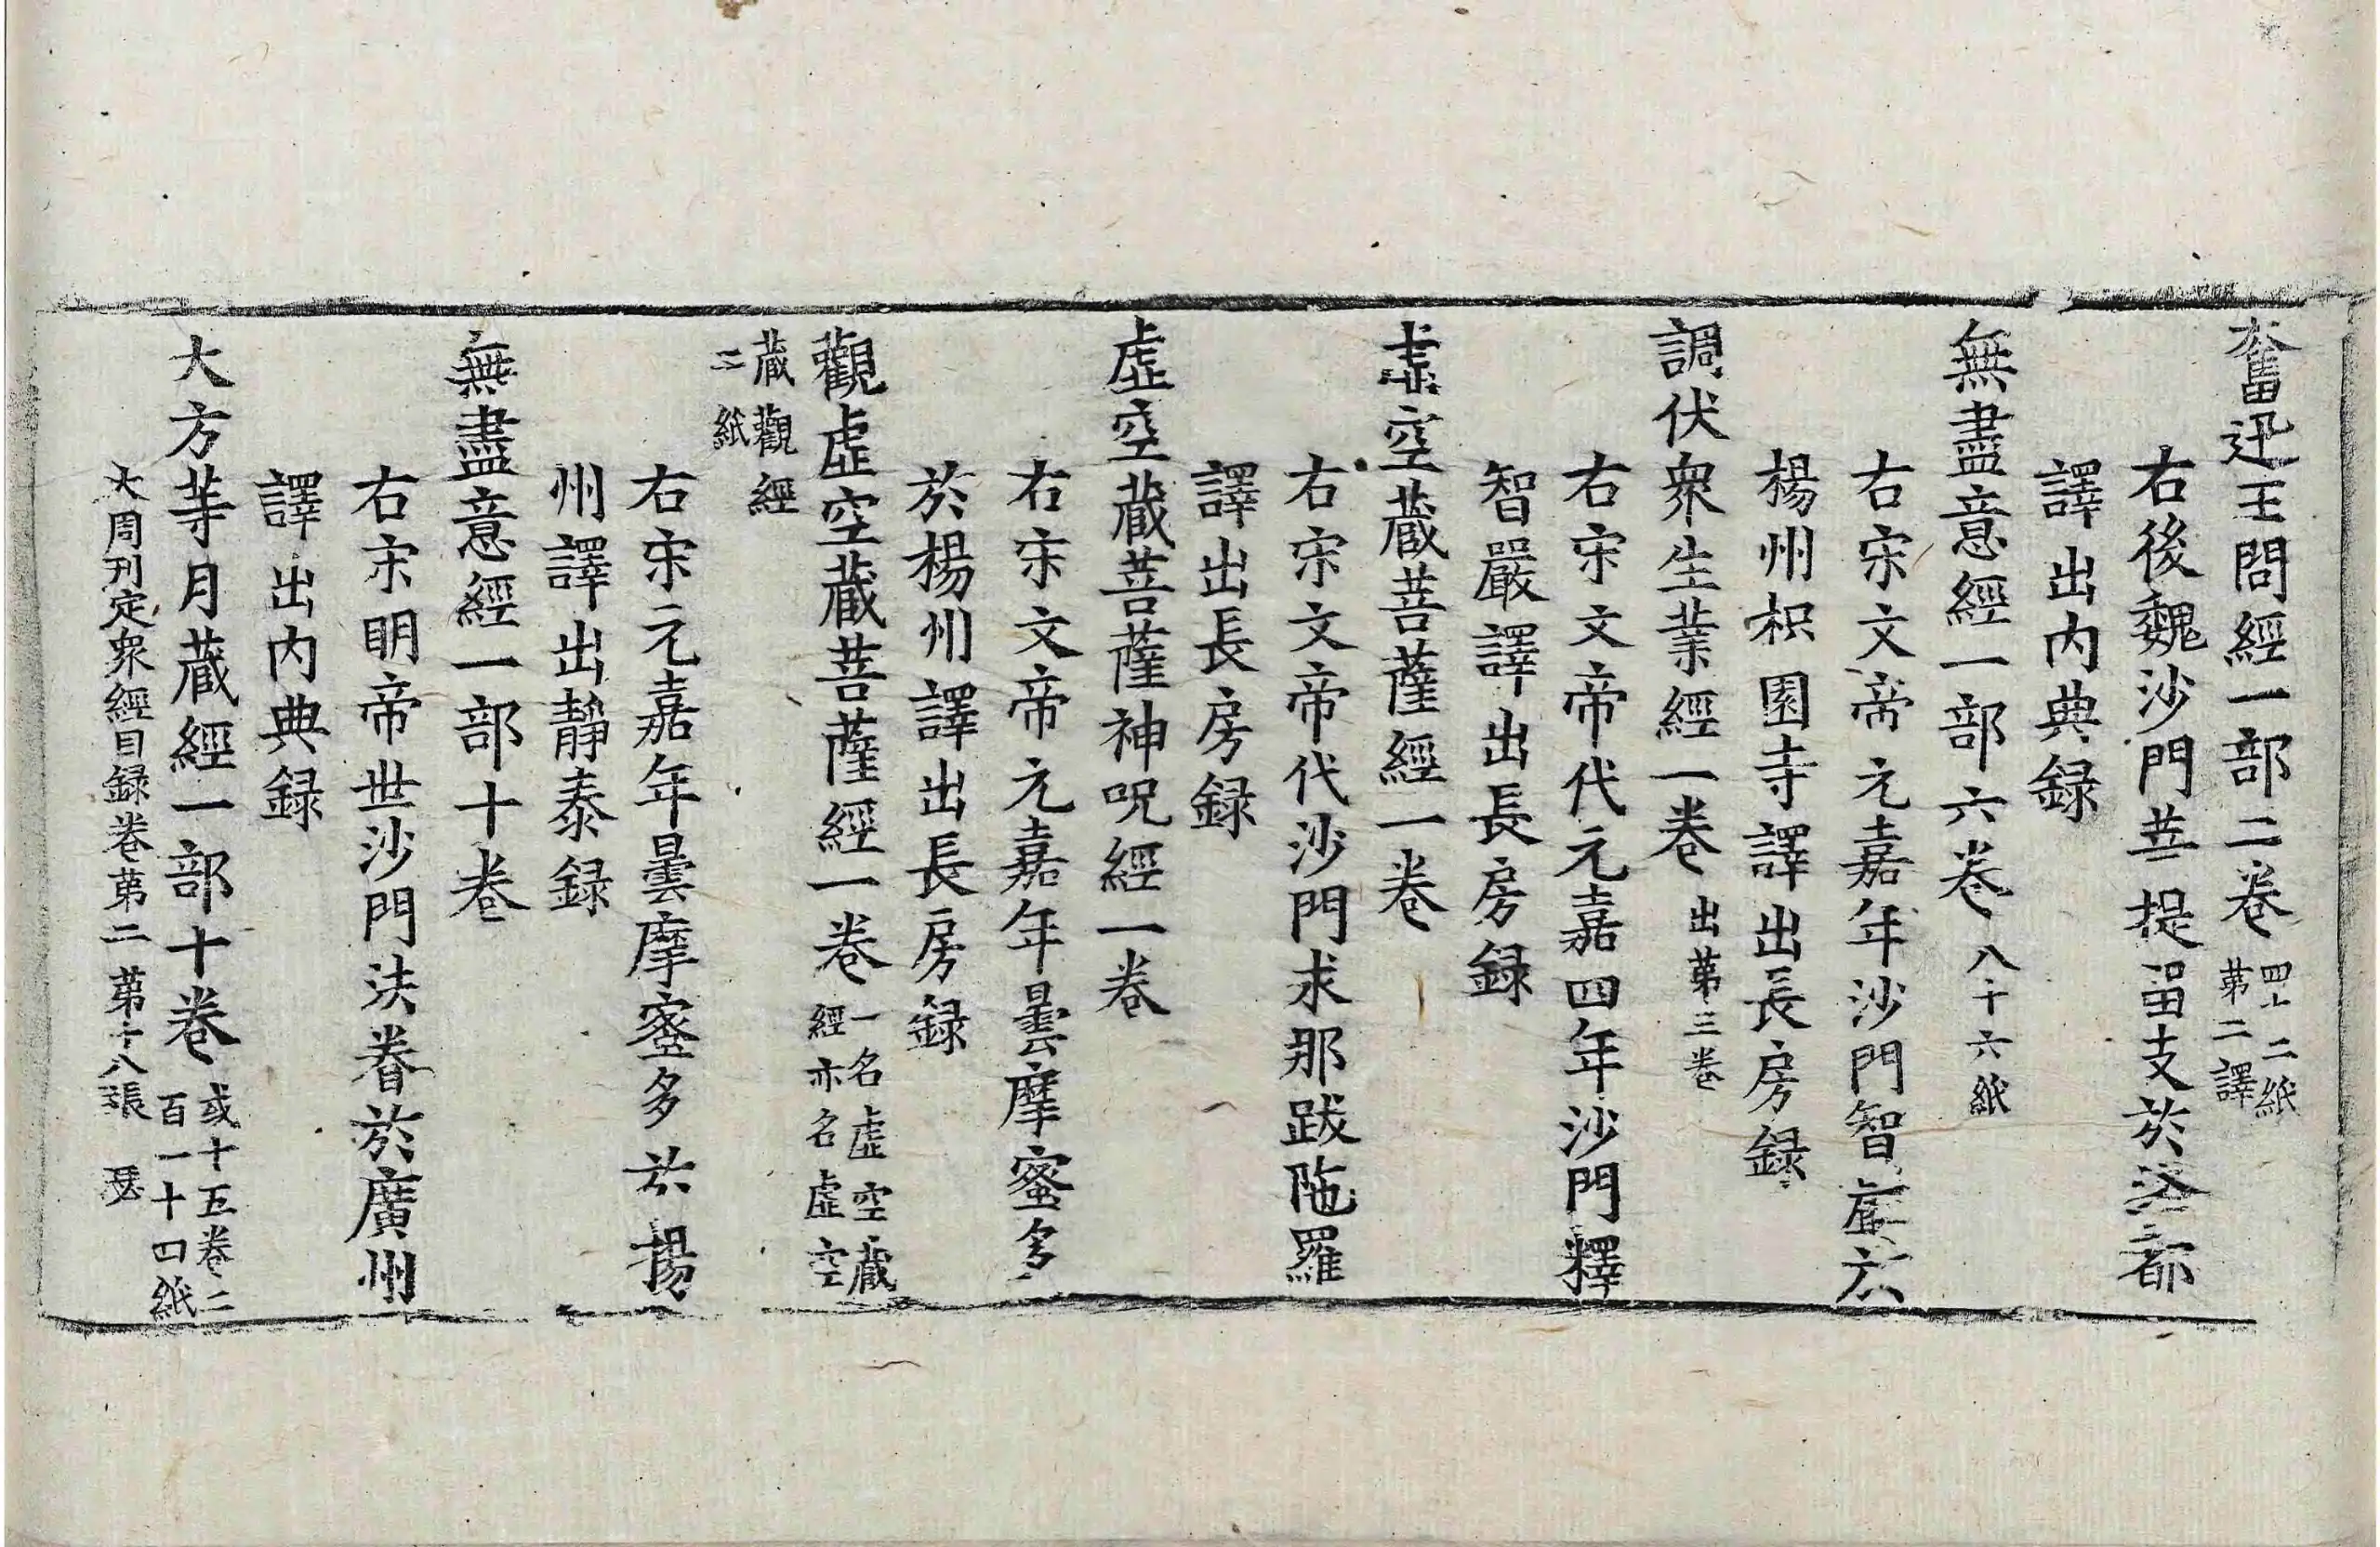 奮迅王問經一部二卷四十二紙第二譯
右後魏沙門菩提留支於洛都
譯出內典録
無盡意經一部六卷八十六紙
右宋文帝元嘉年沙門智嚴於
楊州枳園寺譯出長房録
調伏衆生業經一卷出第三卷
右宋文帝代元嘉四年沙門釋
智嚴譯出長房録
虛空藏菩薩經一卷
右宋文帝代沙門求那跋陁羅
譯出長房録
虛空藏菩薩神呪經一卷
右宋文帝元嘉年曇摩蜜多
於楊州譯出長房録
觀虛空藏菩薩經一卷一名虛空藏經亦名虛空
藏觀經二紙
右宋元嘉年曇摩蜜多於揚
州譯出靜泰録
無盡意經一部十卷
右宋明帝世沙門法眷於廣州
譯出內典録
大方等月藏經一部十卷或十五卷二百一十四紙
大周刊定衆經目録卷第二 第十八張